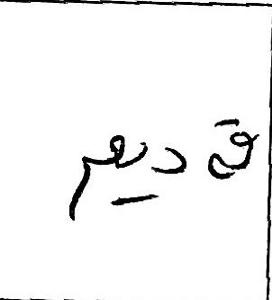 قديم